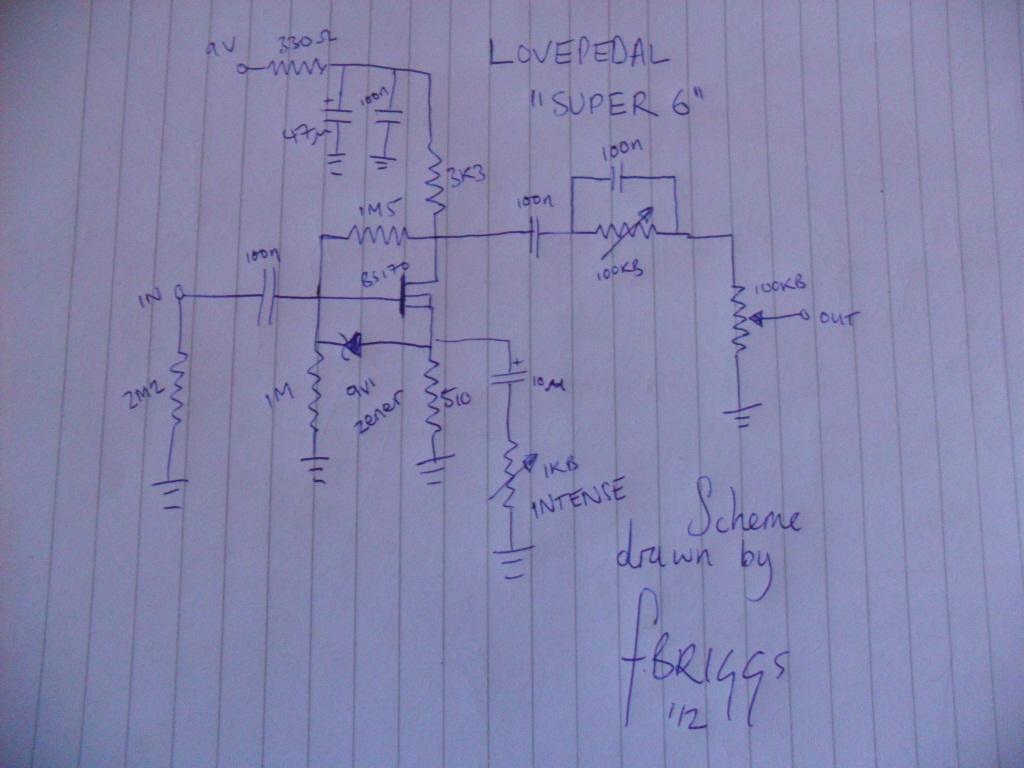 9V
330Ω
LOVEPEDAL
"SUPER 6"
+
47μ
100n
3K3
1M5
100n
100n
100KB
100n
BS170
IN
100KB
OUT
2M2
1M
9V1
zener
510
+
10μ
1KB
INTENSE
Scheme
drawn by
f.BRIGGS
'12